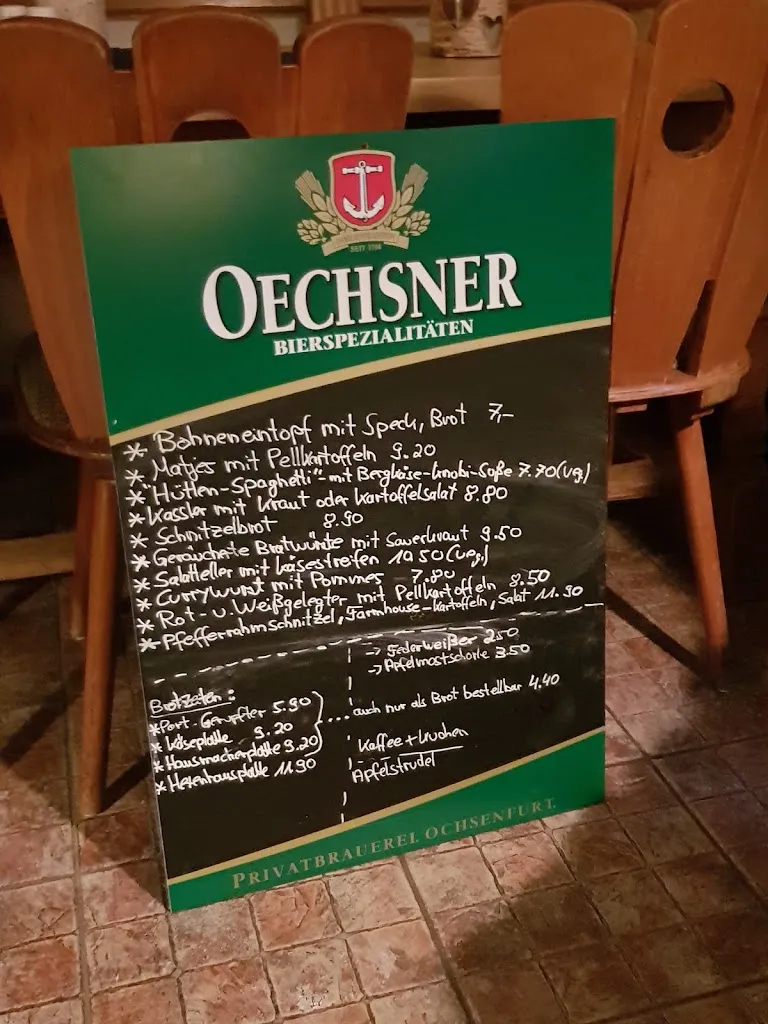 SEIT 1786
OECHSNER
BIERSPEZIALITÄTEN
* Bohneneintopf mit Speck, Brot 7,-
* Matjes mit Pellkartoffeln 9.20
* "Hütten-Spaghetti" mit Bergkäse-Knobi-Soße 7.70 (veg)
* Kassler mit Kraut oder Kartoffelsalat 8.80
* Schnitzelbrot 8.90
* Geräucherte Bratwürste mit Sauerkraut 9.50
* Salatteller mit Käsestreifen 10.50 (veg)
* Currywurst mit Pommes 7.80
* Rot- u. Weißgelegter mit Pellkartoffeln 8.50
* Pfefferrahmschnitzel, Farmhouse-Kartoffeln, Salat 11.90
→ Federweißer 2.50
→ Apfelmostschorle 3.50
Brotzeiten:
* Port. Gerupfter 5.90
* Käseplatte 9.20
* Hausmacherplatte 9.20
* Hexenhausplatte 11.90
... auch nur als Brot bestellbar 4.40
Kaffee + Kuchen
Apfelstrudel
PRIVATBRAUEREI OCHSENFURT